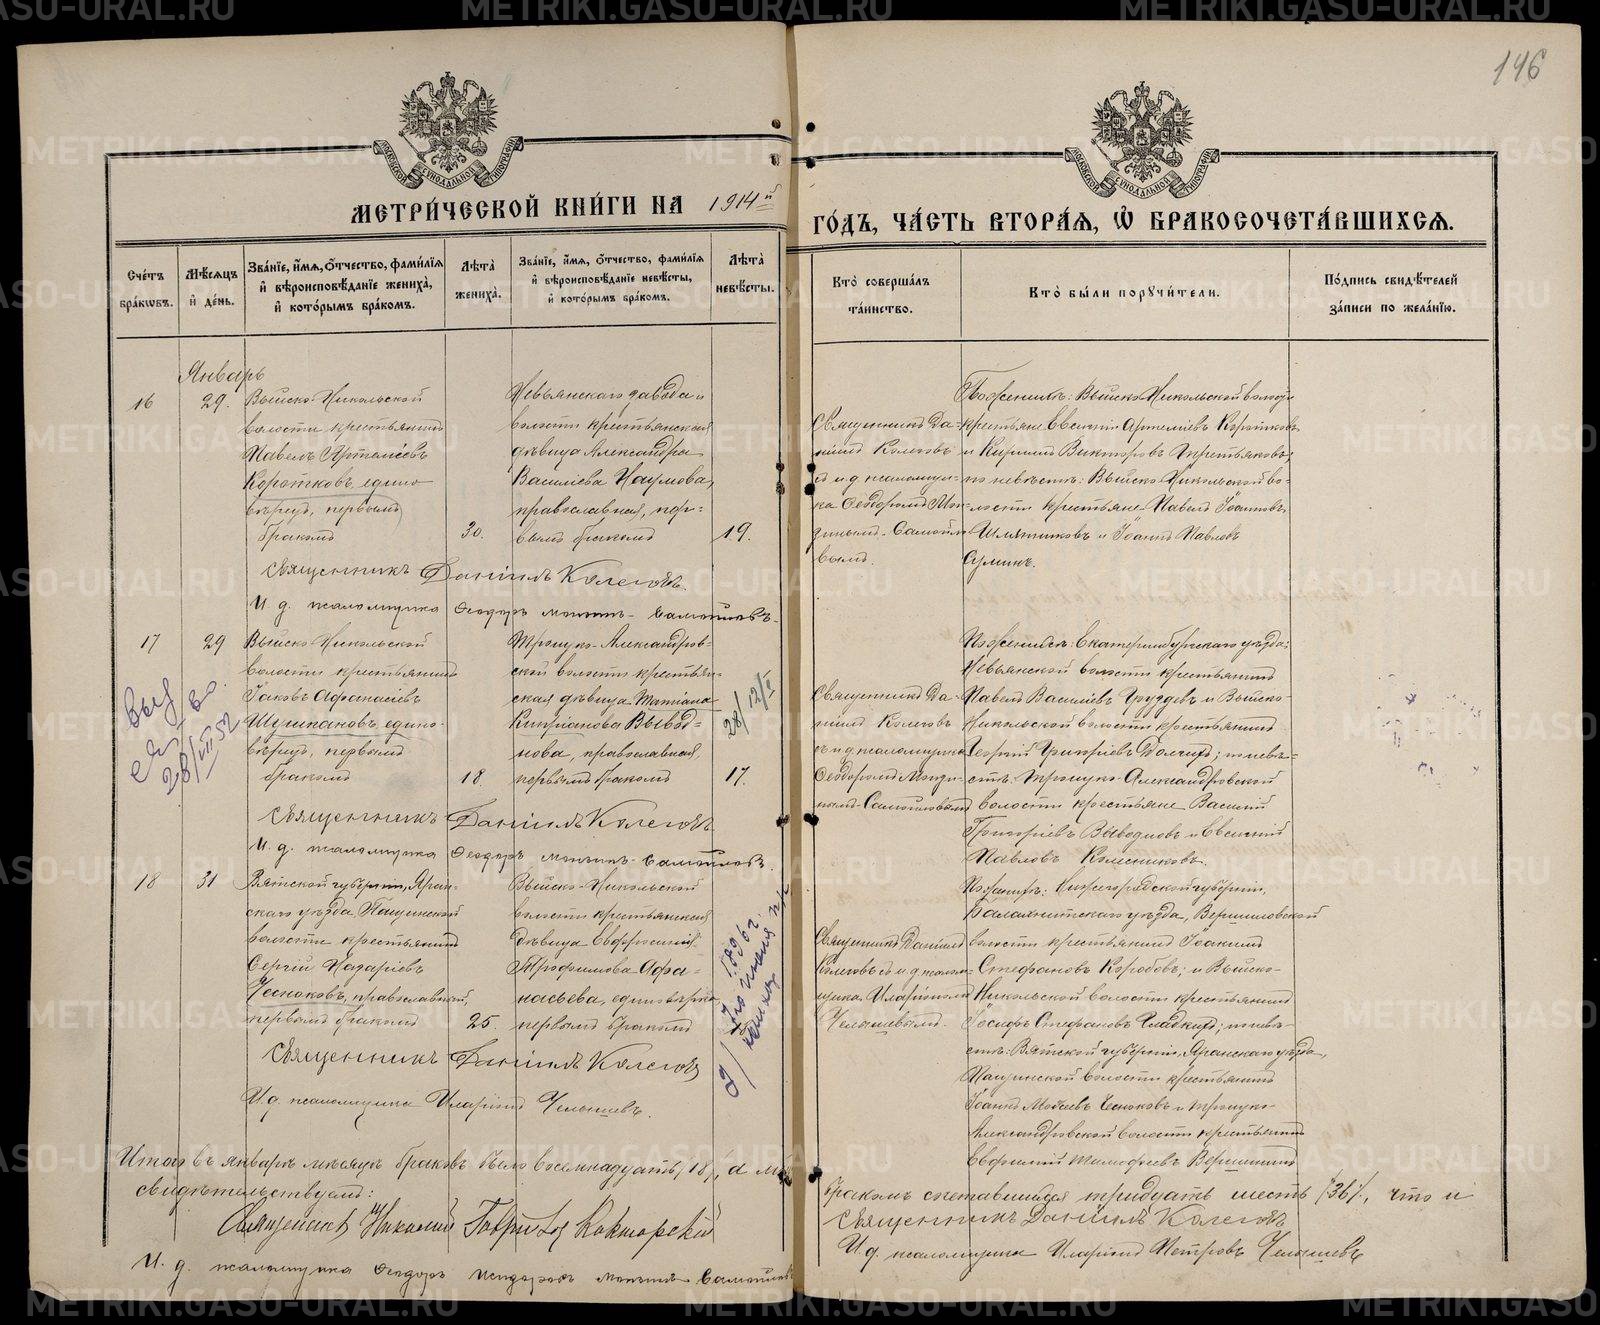 146
МЕТРИЧЕСКОЙ КНИГИ НА 1914й
ГОДЪ, ЧАСТЬ ВТОРАЯ, Ѡ БРАКОСОЧЕТАВШИХСЯ.
Счетъ браковъ.
Мѣсяцъ и день.
Званіе, имя, отчество, фамилія и вѣроисповѣданіе жениха, и которымъ бракомъ.
Лѣта жениха.
Званіе, имя, отчество, фамилія и вѣроисповѣданіе невѣсты, и которымъ бракомъ.
Лѣта невѣсты.
Кто совершалъ таинство.
Кто были поручители.
Подпись свидѣтелей записи по желанію.
Январь
16
29.
Выйско-Никольской
волости крестьянинъ
Павелъ Артеміевъ
Коротковъ, едино-
вѣрецъ, первымъ
бракомъ
30.
Невьянскаго завода и
волости крестьянская
дѣвица Александра
Василіева Наумова,
православная, пер-
вымъ бракомъ
19.
Священникъ Да-
ніилъ Колеговъ
съ и. д. псаломщи-
ка Ѳеодоромъ Мон-
зинымъ-Самойло-
вымъ.
По женихѣ: Выйско-Никольской волости
крестьяне Евсигній Артеміевъ Коротковъ
и Кириллъ Викторовъ Третьяковъ;
по невѣстѣ: Выйско-Никольской во-
лости крестьяне Павелъ Іоанновъ
и Іоаннъ Павловъ
Священникъ Даніилъ Колеговъ.
И. д. псаломщика Ѳеодоръ Монзинъ-Самойловъ.
17
29
Выйско-Никольской
волости крестьянинъ
Іаковъ Аѳанасіевъ
едино-
вѣрецъ, первымъ
бракомъ
18.
Троицко-Александров-
ской волости крестьян-
ская дѣвица Татіана
Кипріанова Вывод-
нова, православная,
первымъ бракомъ
17.
28/12/I
28/VII 52
Священникъ Да-
ніилъ Колеговъ
съ и. д. псаломщика
Ѳеодоромъ Монзи-
нымъ-Самойловымъ
По женихѣ: Екатеринбургскаго уѣзда,
Невьянской волости крестьянинъ
Павелъ Василіевъ Груздевъ и Выйско-
Никольской волости крестьянинъ
Георгій Григоріевъ Долгихъ; по невѣ-
стѣ: Троицко-Александровской
волости крестьяне Василій
Григоріевъ Выводновъ и Евгеній
Павловъ Колесниковъ.
Священникъ Даніилъ Колеговъ
И. д. псаломщика Ѳеодоръ Монзинъ-Самойловъ.
18
31
Вятской губерніи, Яран-
скаго уѣзда,
волости крестьянинъ
Сергій Назаріевъ
Чесноковъ, православный,
первымъ бракомъ
25.
Выйско-Никольской
волости крестьянская
дѣвица Евфросинія
Трофимова Аѳа-
насьева, единовѣрка,
первымъ бракомъ
1896 г.
Священникъ Даніилъ
Колеговъ съ и. д. псалом-
щика Иларіономъ
Челышевымъ.
По женихѣ: Нижегородской губерніи,
Балахнинскаго уѣзда, Вершиловской
волости крестьянинъ Іоакимъ
Стефановъ Коробовъ; и Выйско-
Никольской волости крестьянинъ
Іосифъ Стефановъ Гладкихъ; по невѣ-
стѣ: Вятской губерніи, Яранскаго уѣзда,
волости крестьянинъ
Іоаннъ Моѵсеевъ Чесноковъ и Троицко-
Александровской волости крестьянинъ
Евфимій Тимофеевъ Вершининъ
Священникъ Даніилъ Колеговъ
И. д. псаломщика Иларіонъ Челышевъ.
Итого въ январѣ мѣсяцѣ браковъ было восемнадцать /18/, а лицъ
бракомъ сочетавшихся тридцать шесть /36/, что и
свидѣтельствуемъ:
Священникъ Николай
Священникъ Даніилъ Колеговъ
И. д. псаломщика Ѳеодоръ Исидоровъ Монзинъ-Самойловъ
И. д. псаломщика Иларіонъ Петровъ Челышевъ
METRIKI.GASO-URAL.RU